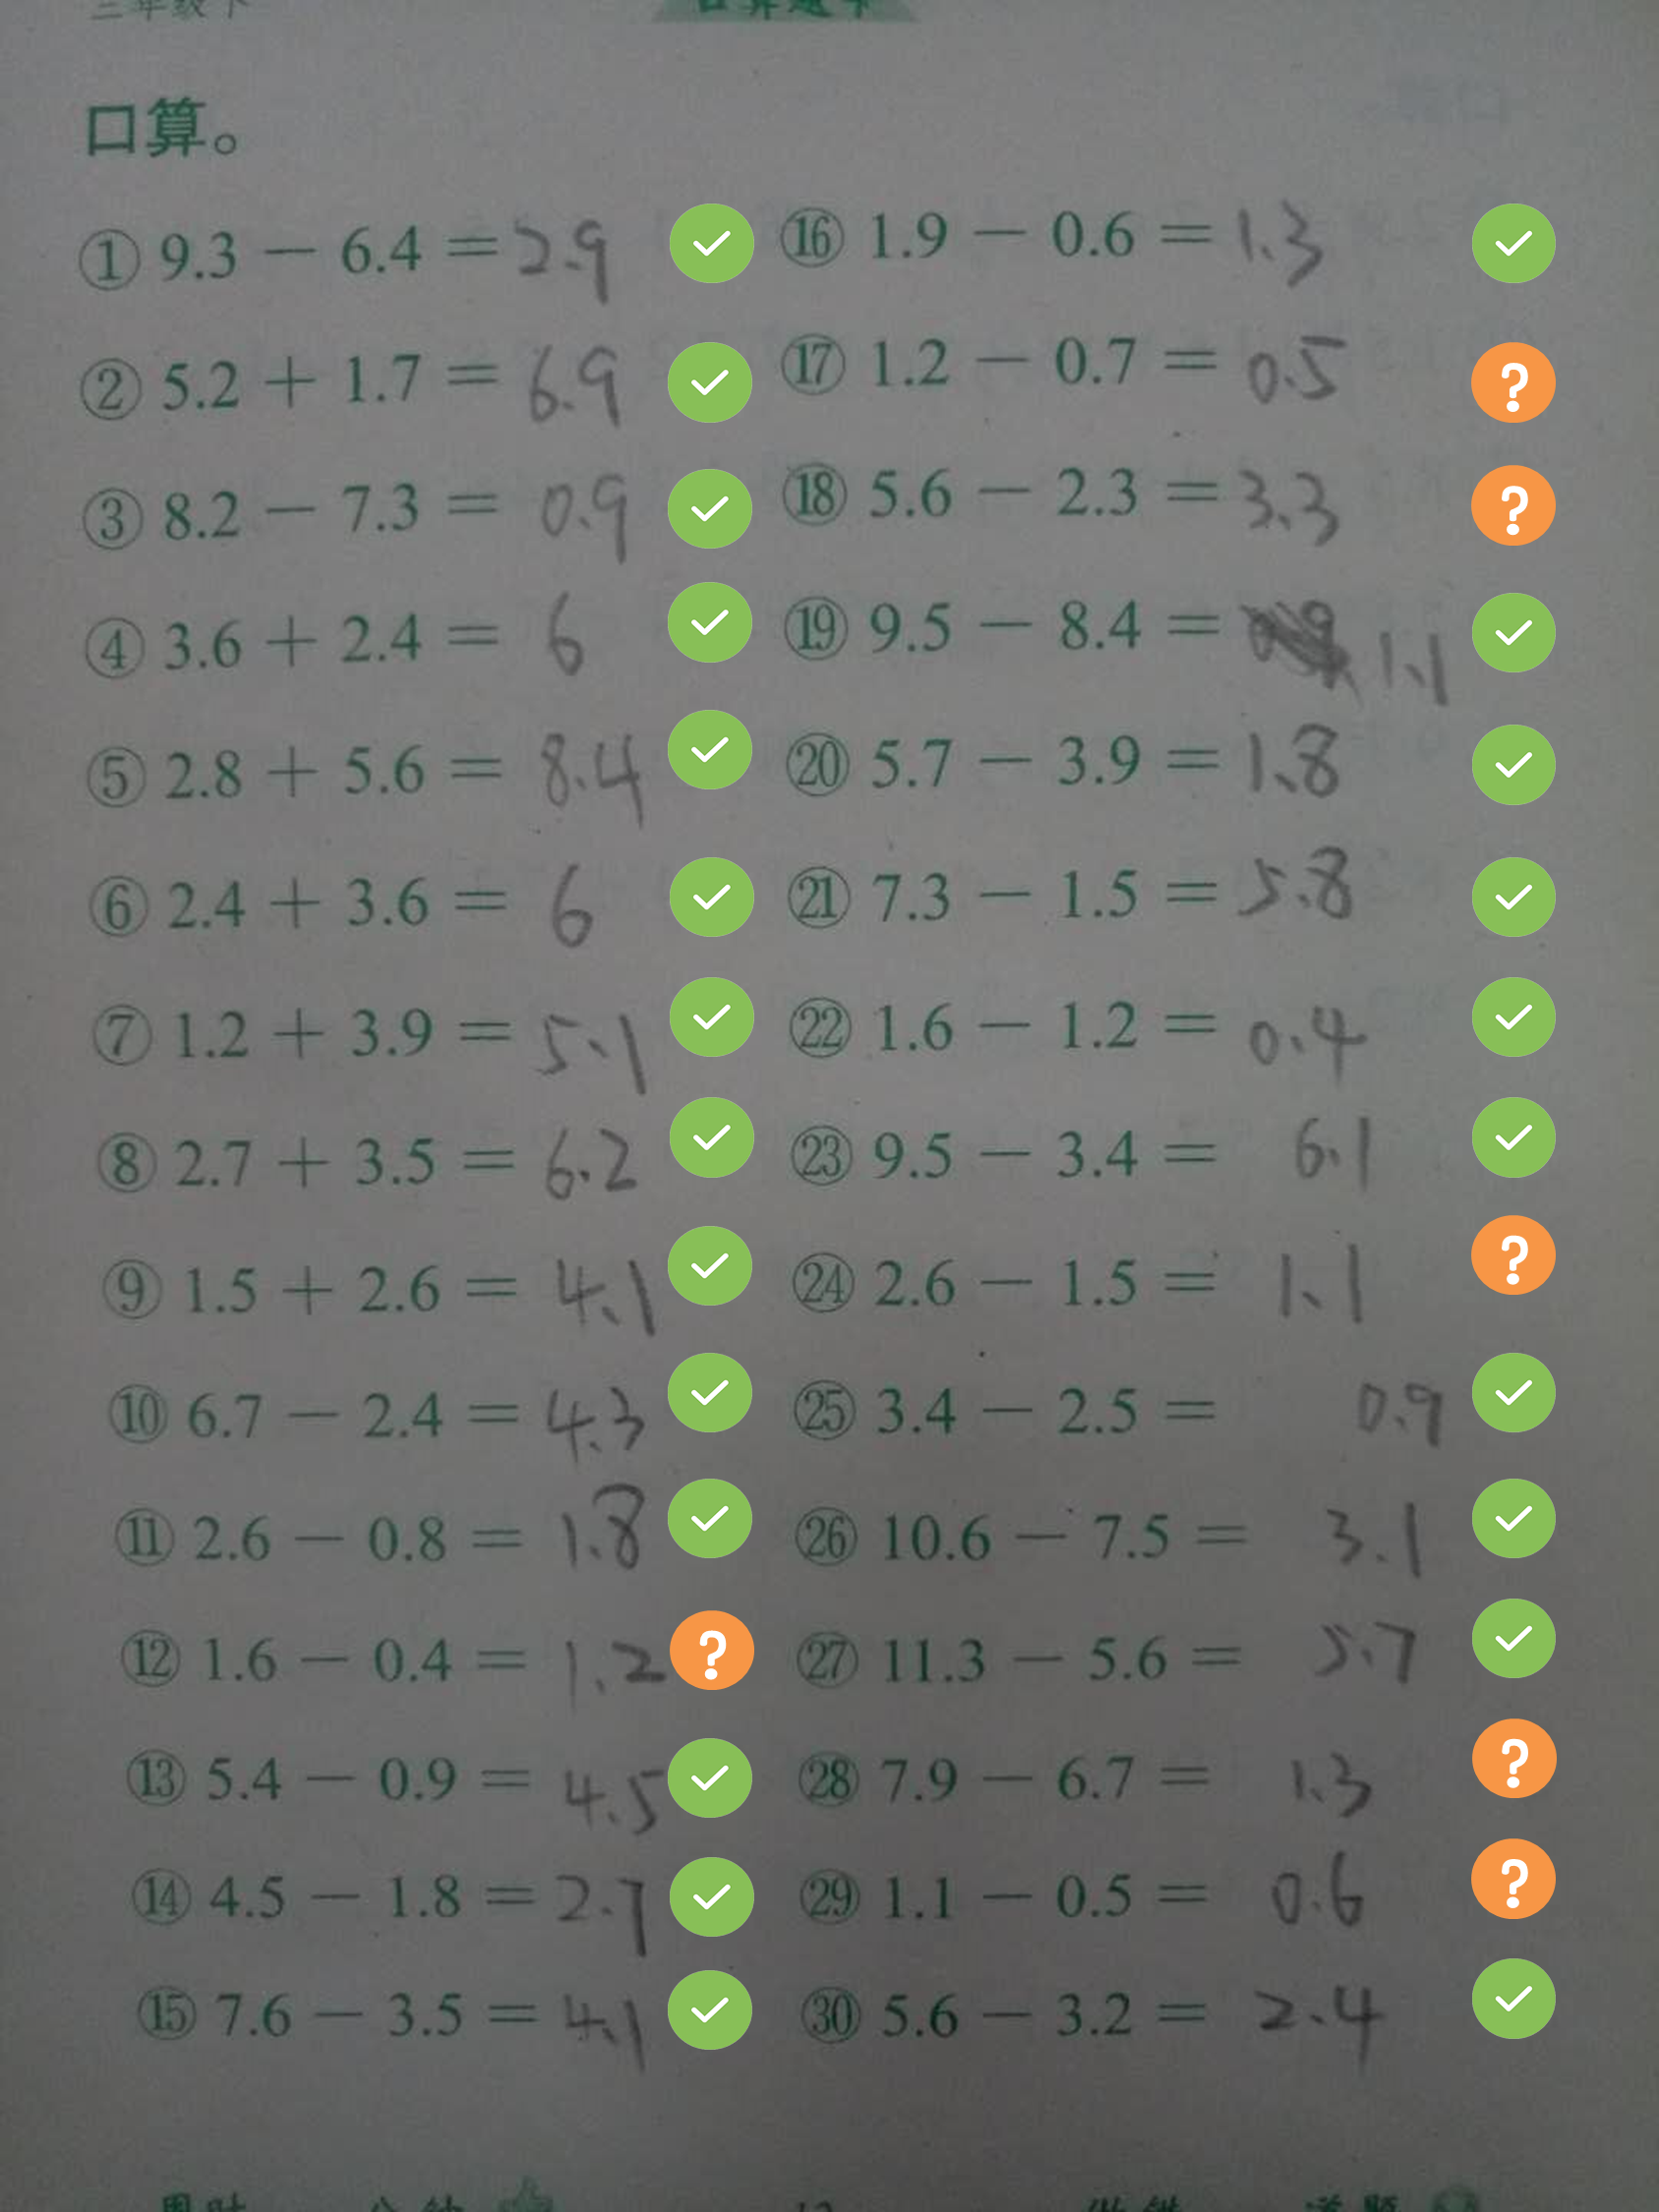 三年级下
口算。
① 9.3 − 6.4 = 2.9
② 5.2 + 1.7 = 6.9
③ 8.2 − 7.3 = 0.9
④ 3.6 + 2.4 = 6
⑤ 2.8 + 5.6 = 8.4
⑥ 2.4 + 3.6 = 6
⑦ 1.2 + 3.9 = 5.1
⑧ 2.7 + 3.5 = 6.2
⑨ 1.5 + 2.6 = 4.1
⑩ 6.7 − 2.4 = 4.3
⑪ 2.6 − 0.8 = 1.8
⑫ 1.6 − 0.4 = 1.2 ?
⑬ 5.4 − 0.9 = 4.5
⑭ 4.5 − 1.8 = 2.7
⑮ 7.6 − 3.5 = 4.1
⑯ 1.9 − 0.6 = 1.3
⑰ 1.2 − 0.7 = 0.5 ?
⑱ 5.6 − 2.3 = 3.3 ?
⑲ 9.5 − 8.4 = 1.1
⑳ 5.7 − 3.9 = 1.8
㉑ 7.3 − 1.5 = 5.8
㉒ 1.6 − 1.2 = 0.4
㉓ 9.5 − 3.4 = 6.1
㉔ 2.6 − 1.5 = 1.1 ?
㉕ 3.4 − 2.5 = 0.9
㉖ 10.6 − 7.5 = 3.1
㉗ 11.3 − 5.6 = 5.7
㉘ 7.9 − 6.7 = 1.3 ?
㉙ 1.1 − 0.5 = 0.6 ?
㉚ 5.6 − 3.2 = 2.4